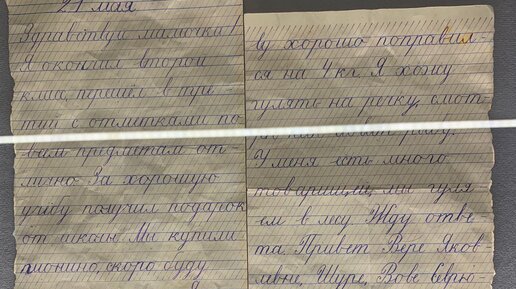 21 мая
Здравствуй мамочка!
Я окончил второй
класс, перешёл в тре-
тий с отметками по
всем предметам от-
лично. За хорошую
учёбу получил подарок
от школы. Мы купили
пионино, скоро буду
хорошо поправил-
ся на 4 кг. Я хожу
гулять на речку, смот-
рю как ловят рыбу.
У меня есть много
товарищей, мы гуля
ем в лесу. Жду отве-
та. Привет Вере Яков
левне, Шуре, Вове